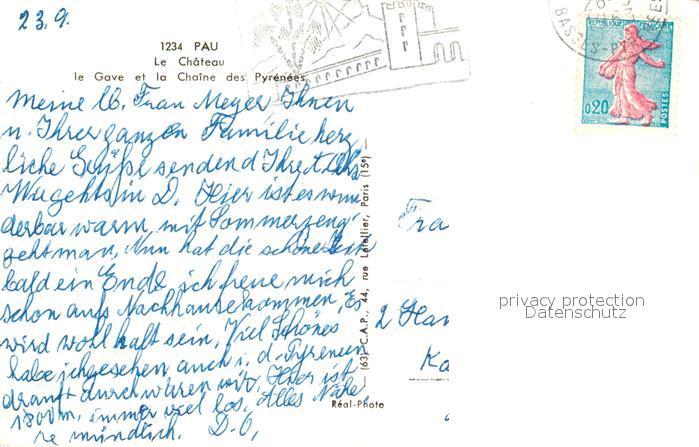 23.9.
1234 PAU
Le Château
le Gave et la Chaîne des Pyrénées
Meine lb. Frau Meyer, Ihnen
u. Ihrer ganzen Familie herz
liche Grüße sendend Ihre
Wie gehts in D. Hier ist es wun
derbar warm, mit Sommerzeug
geht man, Nun hat die schöne Zeit
bald ein Ende, ich freue mich
schon aufs Nachhausekommen, Es
wird wohl kalt sein, Viel Schönes
habe ich gesehen auch i. d. Pyrenäen
waren wir, Hier ist
1800 m, immer viel los, Alles Nähe
re mündlich. D. O,
Réal-Photo
(63) C.A.P., 44, rue Letellier, Paris (15e)
REPUBLIQUE FRANÇAISE
0,20
POSTES
BASSES-P
Fra
2 Ham
Ka
privacy protection
Datenschutz